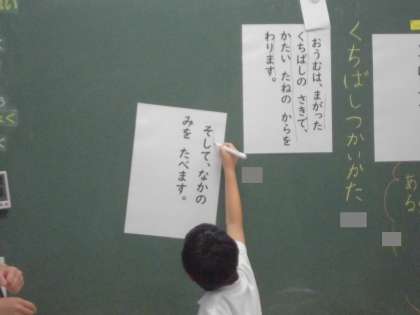 くちばしつかいかた
おうむは、まがった
くちばしの さきで、
かたい たねの からを
わります。
そして、なかの
みを たべます。